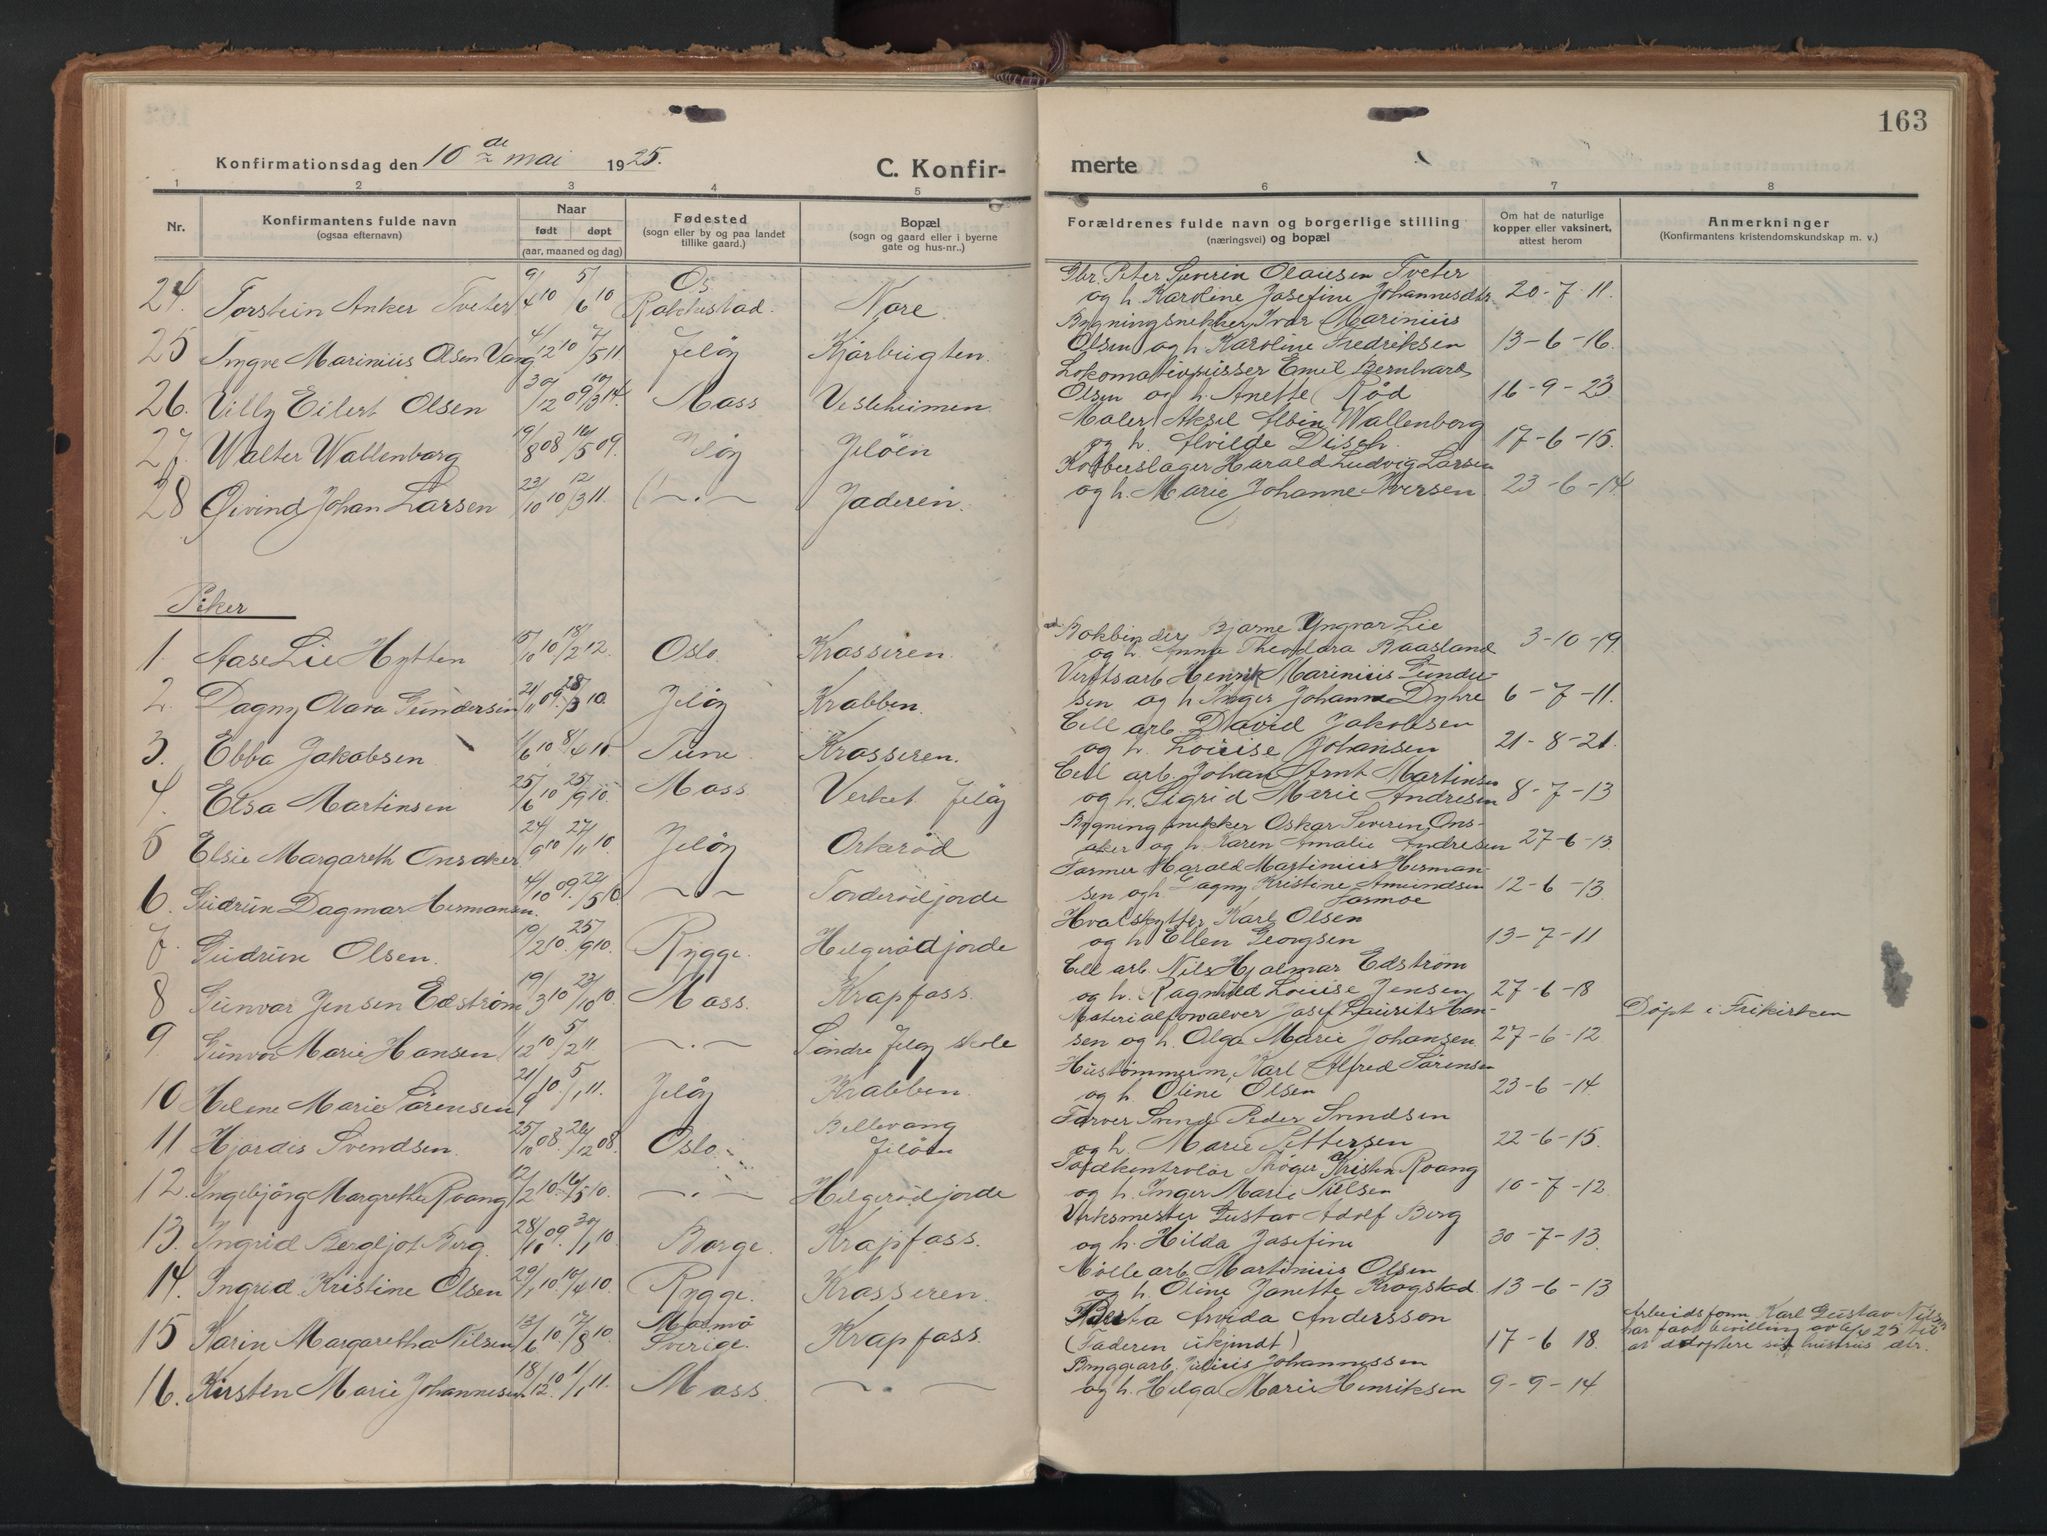 163
Konfirmationsdag den 10de mai 1925. C. Konfir- merte
1 2 3 4 5 6 7 8
Nr. Konfirmantens fulde navn (ogsaa efternavn) Naar født døpt (aar, maaned og dag) Fødested (sogn eller by og paa landet tillike gaard.) Bopæl (sogn og gaard eller i byerne gate og hus-nr.) Forældrenes fulde navn og borgerlige stilling (næringsvei) og bopæl Om hat de naturlige kopper eller vaksinert, attest herom Anmerkninger (Konfirmantens kristendomskundskap m. v.)
24 Torstein Anker Tveter 9/4 10 5/6 10 Os Rakkestad. Nore. Gbr. Peter Severin Olausen Tveter
og h. Karoline Josefine Johannesdtr 20-7-11.
25 Yngve Marinius Olsen Vang 4/12 10 7/5 11 Jeløy Kjærbugten. Bygningsnekker Ivar Marinius
Olsen og h. Karoline Fredriksen 13-6-16.
26. Villy Eilert Olsen 30/12 09 10/3 14. Moss Vesleheimen. Lokomotivpusser Emil Bernhard
Olsen og h. Anette Rød 16-9-23
27. Walter Wallenborg 19/8 08 16/5 09. Jeløy Jeløen Maler Aksel Albin Wallenborg
og h. Alvilde Disch. 17-6-15.
28 Øivind Johan Larsen 23/10 10 12/3 11. -.- Jaderen. Kobberslager Harald Ludvig Larsen
og h. Marie Johanne Iversen 23-6-14
Piker
1. Aase Lie Hytten 5/10 10 18/2 12. Oslo. Krosseren. Bokbinder Bjarne Yngvar Lie
og h. Anna Theodora Baasland 3-10-19
2. Dagny Clara Gundersen 21/11 09. 28/3 10. Jeløy Krabben. Verftsarb Henrik Marinius Gunder-
sen og h. Inger Johanne Dyhre 6-7-11.
3. Ebba Jakobsen 1/6 10 8/4 11 Tune Krosseren. Cell arb. David Jakobsen
og h. Louise Johansen 21-8-21.
4. Elsa Martinsen 25/6 10 25/9 10. Moss Verket Jeløy Cell arb. Johan Arnt Martinsen
og h. Sigrid Marie Andresen 8-7-13
5 Elsie Margareth Onsaker 24/9 10 27/11 10 Jeløy Orkerød Bygningsnekker Oskar Severin Ons-
aker og h Karen Amalie Andresen 27-6-13
6. Gudrun Dagmar Hermansen. 4/10 09. 22/5 10. -,- Torderødjorde Farmer Harald Martinius Herman-
sen og h. Dagny Kristine Amundsen
Jarmoe 12-6-13
7. Gudrun Olsen. 19/2 10. 25/9 10. Rygge Helgerødjorde Hvalskytter Karl Olsen
og h. Ellen Georgsen 13-7-11
8 Gunvor Jensen Edstrøm 19/3 10 23/10 10. Moss Krapfoss. Cell arb. Nils Hjalmar Edstrøm
og h. Ragnhild Louise Jensen 27-6-18
9 Gunvor Marie Hansen 11/12 10 5/2 11 -.- Søndre Jeløy skole Materialforvalter Josef Laurits Han-
sen og h. Olga Marie Johansen 27-6-12 Døpt i Frikirken
10 Helene Marie Sørensen 21/9 10. 5/1 11. Jeløy Krabben Hustømmerm. Karl Alfred Sørensen
og h. Oline Olsen 23-6-14.
11 Hjørdis Svendsen. 25/10 08. 26/12 08. Oslo. Bellevang
Jeløen Farver Svend Peder Svendsen
og h. Marie Pettersen 22-6-15.
12. Ingebjørg Margrethe Roang 12/2 10. 16/5 10. -.- Helgerødjorde Toldkontrolør Thøger Kristen Roang
og h. Inger Marie Nielsen 10-7-12.
13. Ingrid Bergljot Berg. 28/10 09. 30/1 10. Borge. Krapfoss. Verksmester Gustav Adolf Berg
og h. Hilda Josefine 30-7-13.
14. Ingrid Kristine Olsen 29/1 10. 10/4 10. Rygge. Krosseren. Møllearb Martinius Olsen
og h. Oline Janette Krogstad. 13-6-13
15 Karin Margaretha Nilsen 13/6 10. 17/8 10. Malmø
Sverige. Krapfoss Berta Arvida Andersson
(Faderen ukjendt) 17-6 18. Arbeidsform Karl Gustav Nilsen
har faat bevilling av 25 til
at adoptere sin hustrus dtr.
16. Kirsten Marie Johannesen 18/12 10. 1/1 11. Moss -.- Bryggearb. Julius Johannessen
og h. Helga Marie Henriksen 9-9-14